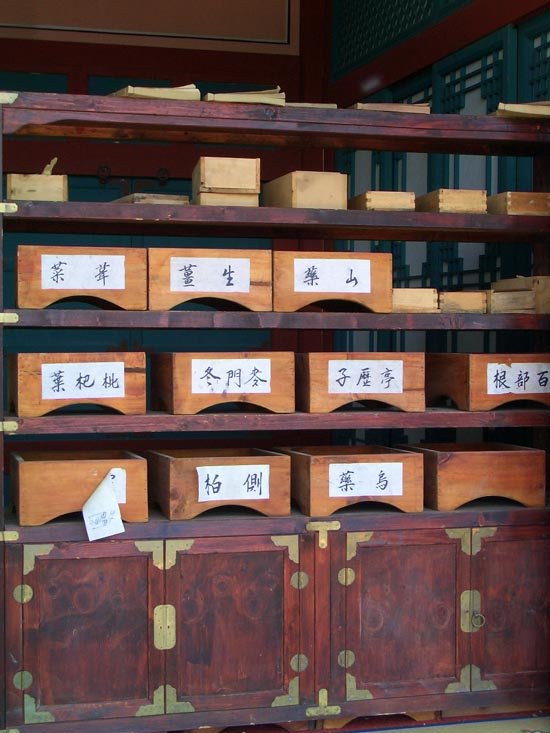 山藥
生薑
茸菜
百部根
亭歷子
麥門冬
枇杷葉
烏藥
側柏